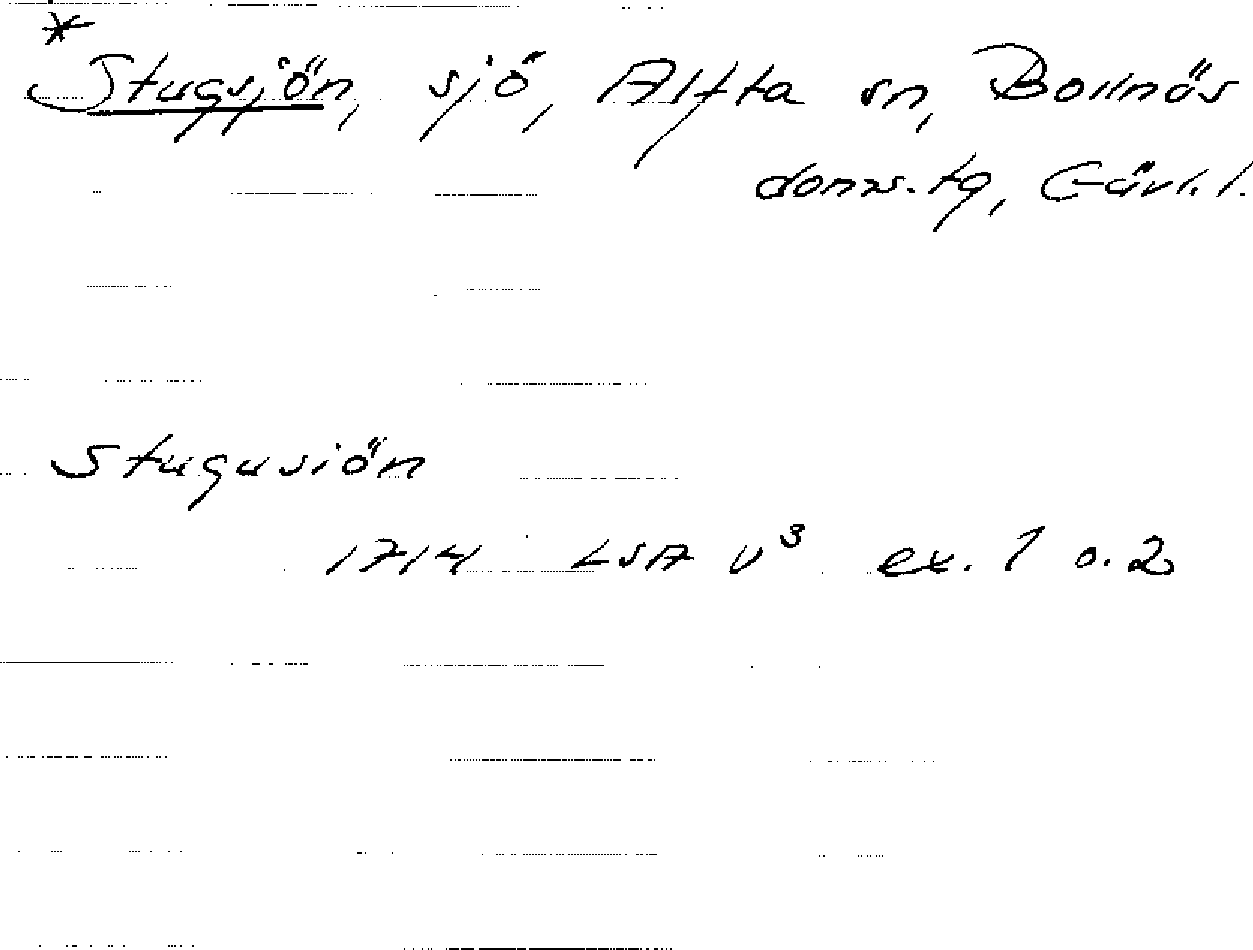 *
Stugsjön, sjö, Alfta sn, Bollnäs
doms.tg, Gävl.l.
Stugusiön
1714 LSA V³ ex. 1 o. 2